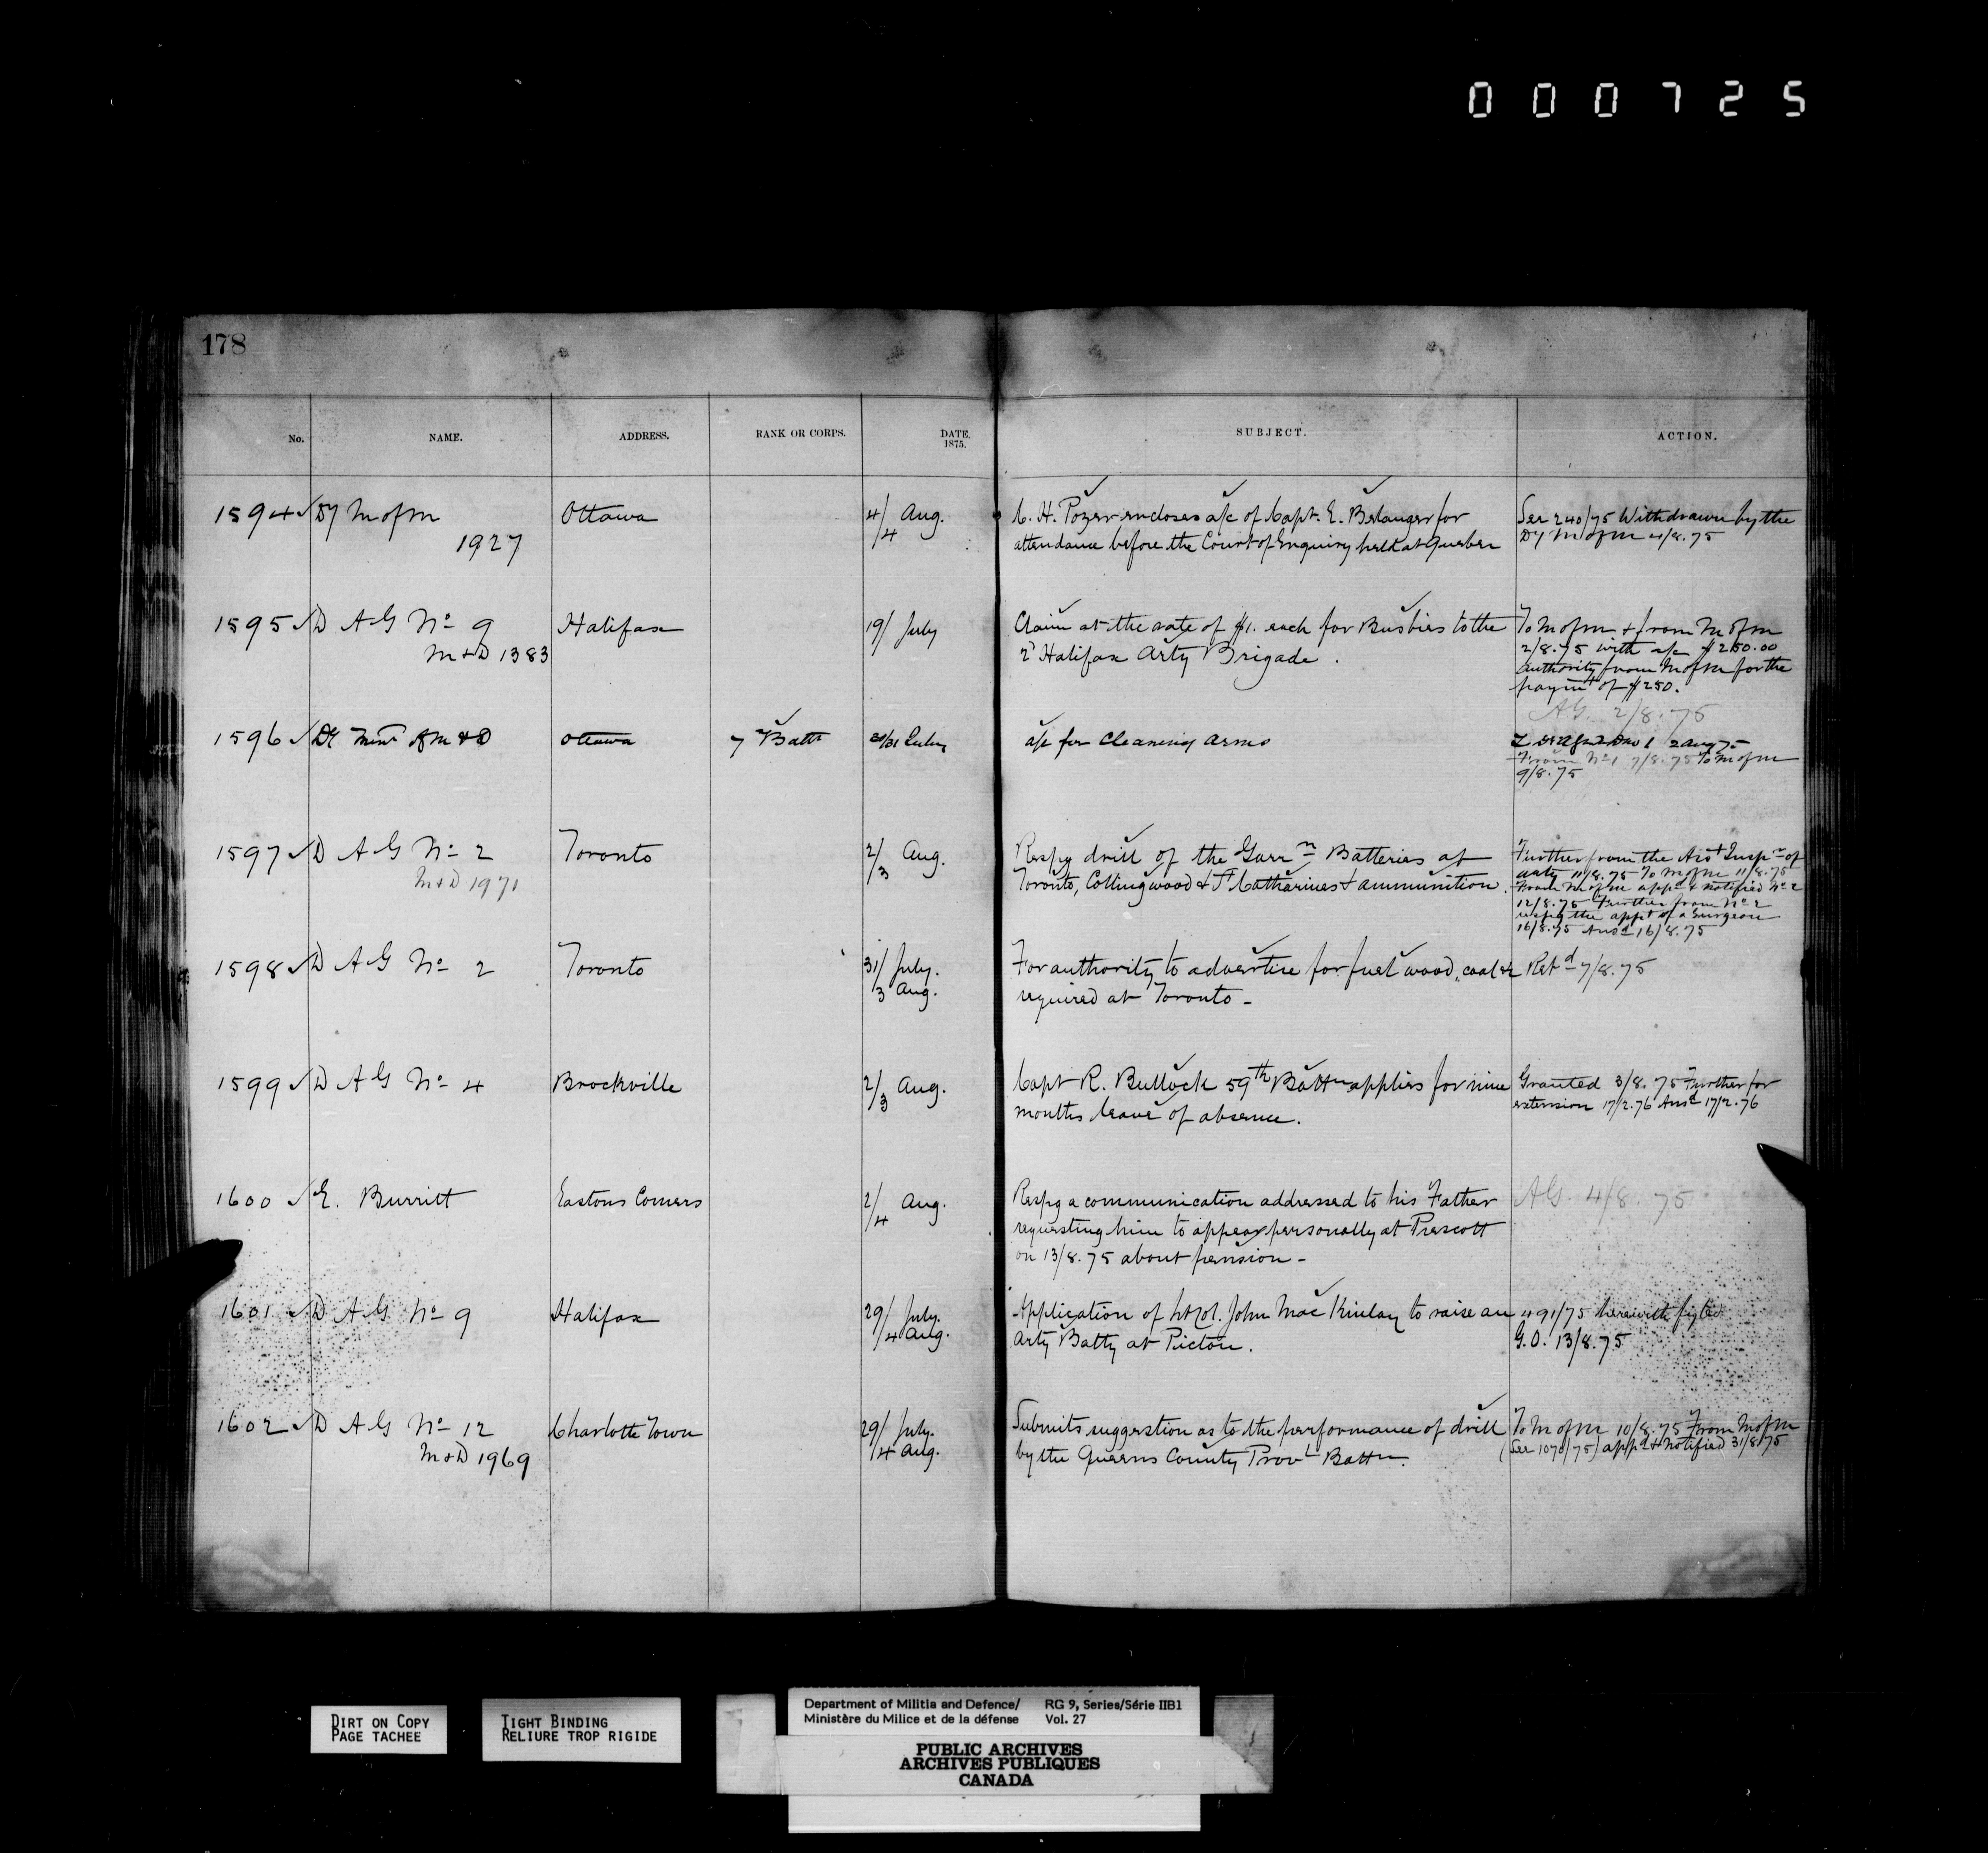 000725
178
No. NAME. ADDRESS. RANK OR CORPS. DATE. 1875. SUBJECT. ACTION.
1594 Dy M of M Ottawa 4/4 Aug. C. H. Pozer encloses a/c of Capt. E. Belanger for See 240/75 Withdrawn by the
1927 attendance before the Court of Enquiry held at Quebec Dy M of M 4/8.75
1595 D A G No 9 Halifax 19/ July Claim at the rate of $1. each for Busbies to the To M of M & from M of M
M&D 1383 2d Halifax Arty Brigade. 2/8.75 with a/c $250.00
authority from M of M for the
paymt of $250.
AG. 2/8.75
1596 Dy Minr of M & D Ottawa 7th Battn 31 July a/c for Cleaning arms 2 Aug 75
From No 1 7/8.75 To M of M
9/8.75
1597 D A G No 2 Toronto 2/3 Aug. Respg drill of the Garrn Batteries at Further from the Asst Inspr of
M&D 1971 Toronto, Collingwood & St Catharines & ammunition. arty 11/8.75 To M of M 11/8.75
From M of M appd & notified No 2
12/8.75 Further from No 2
respg the appt of a Surgeon
16/8.75 Ansd 16/8.75
1598 D A G No 2 Toronto 31/ July. 3 Aug. For authority to advertise for fuel wood, coal &c Retd 7/8.75
required at Toronto -
1599 D A G No 4 Brockville 2/3 Aug. Capt R. Bullock 59th Battn applies for nine Granted 3/8.75 Further for
months leave of absence. extension 17/2.76 Ansd 17/2.76
1600 E. Burritt Eastons Corners 2/4 Aug. Respg a communication addressed to his Father AG. 4/8.75
requesting him to appear personally at Prescott
on 13/8.75 about pension -
1601 D A G No 9 Halifax 29/ July. 4 Aug. Application of Lt Col. John MacKinlay to raise an 491/75 herewith
Arty Batty at Pictou. G.O. 13/8.75
1602 D A G No 12 Charlotte Town 29/ July. 4 Aug. Submits suggestion as to the performance of drill To M of M 10/8.75 From M of M
M&D 1969 by the Queens County Provl Battn. (See 1070/75) appd & notified 31/8/75
DIRT ON COPY
PAGE TACHEE
TIGHT BINDING
RELIURE TROP RIGIDE
Department of Militia and Defence/ RG 9, Series/Série IIB1
Ministère du Milice et de la défense Vol. 27
PUBLIC ARCHIVES
ARCHIVES PUBLIQUES
CANADA